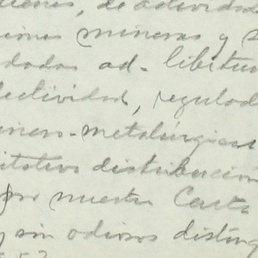 ciones, de actividade
iones mineras y s
dadas ad-libitum
lectividad, regulad
inero-metalúrgicas
itativa distribución
por nuestra Carta
y sin odiosos disting